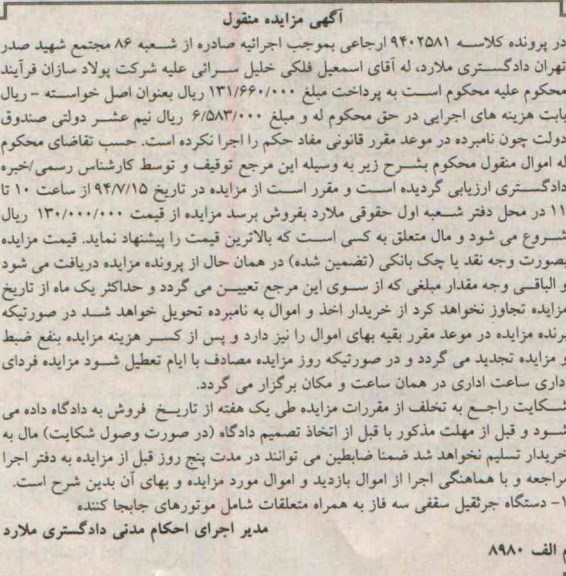 آگهی مزایده منقول
در پرونده کلاسه ۹۴۰۲۵۸۱ ارجاعی بموجب اجرائیه صادره از شعبه ۸۶ مجتمع شهید صدر
تهران دادگستری ملارد، له آقای اسمعیل فلکی خلیل سرائی علیه شرکت پولاد سازان فرآیند
محکوم علیه محکوم است به پرداخت مبلغ ۱۳۱/۶۶۰/۰۰۰ ریال بعنوان اصل خواسته - ریال
بابت هزینه های اجرایی در حق محکوم له و مبلغ ۶/۵۸۳/۰۰۰ ریال نیم عشر دولتی صندوق
دولت چون نامبرده در موعد مقرر قانونی مفاد حکم را اجرا نکرده است. حسب تقاضای محکوم
له اموال منقول محکوم بشرح زیر به وسیله این مرجع توقیف و توسط کارشناس رسمی/خبره
دادگستری ارزیابی گردیده است و مقرر است از مزایده در تاریخ ۹۴/۷/۱۵ از ساعت ۱۰ تا
۱۱ در محل دفتر شعبه اول حقوقی ملارد بفروش برسد مزایده از قیمت ۱۳۰/۰۰۰/۰۰۰ ریال
شروع می شود و مال متعلق به کسی است که بالاترین قیمت را پیشنهاد نماید. قیمت مزایده
بصورت وجه نقد یا چک بانکی (تضمین شده) در همان حال از پرونده مزایده دریافت می شود
و الباقی وجه مقدار مبلغی که از سوی این مرجع تعیین می گردد و حداکثر یک ماه از تاریخ
مزایده تجاوز نخواهد کرد از خریدار اخذ و اموال به نامبرده تحویل خواهد شد در صورتیکه
برنده مزایده در موعد مقرر بقیه بهای اموال را نیز دارد و پس از کسر هزینه مزایده بنفع ضبط
و مزایده تجدید می گردد و در صورتیکه روز مزایده مصادف با ایام تعطیل شود مزایده فردای
اداری ساعت اداری در همان ساعت و مکان برگزار می گردد.
شکایت راجع به تخلف از مقررات مزایده طی یک هفته از تاریخ فروش به دادگاه داده می
شود و قبل از مهلت مذکور با قبل از اتخاذ تصمیم دادگاه (در صورت وصول شکایت) مال به
خریدار تسلیم نخواهد شد ضمنا ضابطین می توانند در مدت پنج روز قبل از مزایده به دفتر اجرا
مراجعه و با هماهنگی اجرا از اموال بازدید و اموال مورد مزایده و بهای آن بدین شرح است.
۱- دستگاه جرثقیل سقفی سه فاز به همراه متعلقات شامل موتورهای جابجا کننده
مدیر اجرای احکام مدنی دادگستری ملارد
م الف ۸۹۸۰